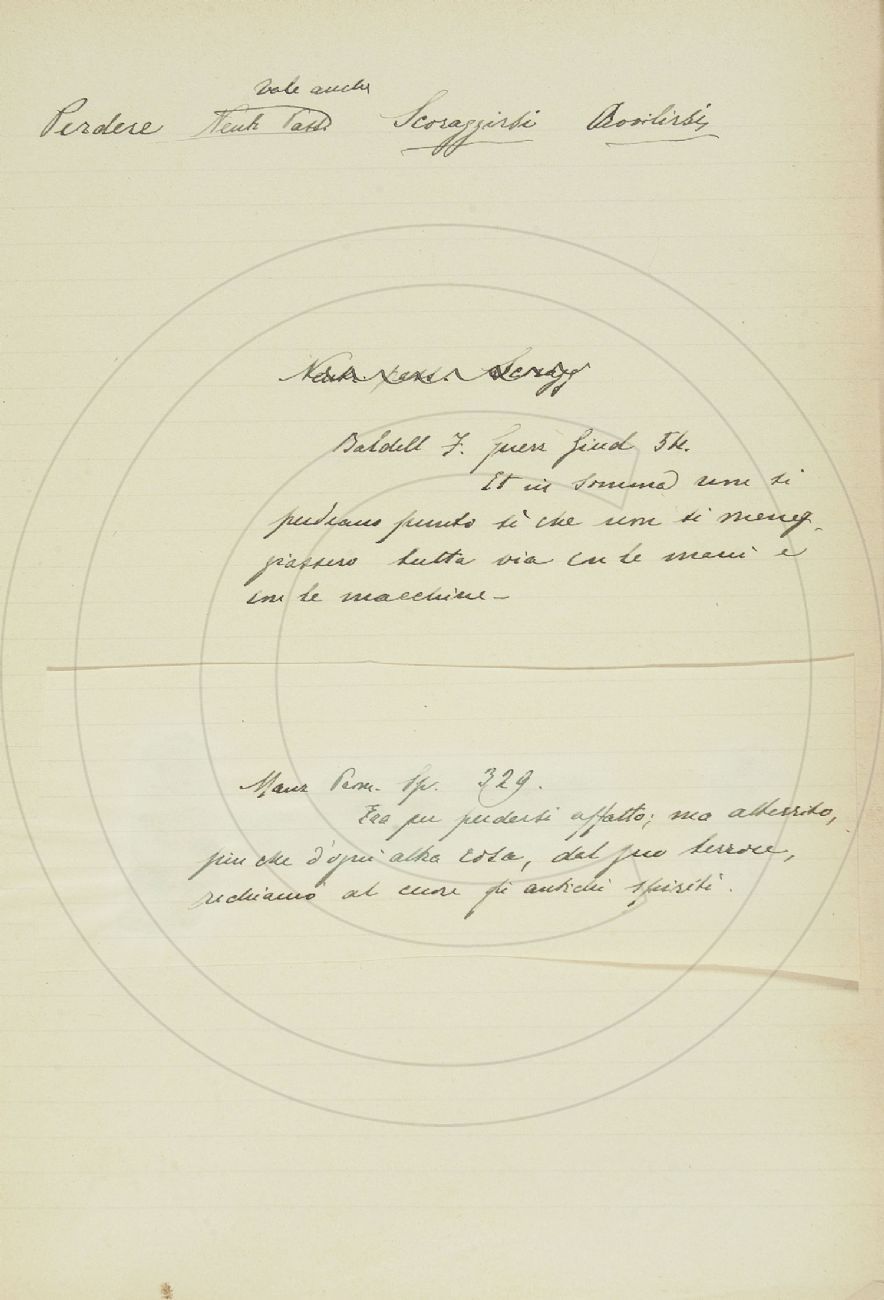 vale anche
Perdere Neutr. Pass. Scoraggirsi Avvilirsi,
Neutr. pass. Scragg
Baldell F. Guerr Giud 54.
Et in somma non si
perdeano punto sì che non si meneg-
giassero tutta via con le mani e
con le macchine –
Manz Prom. Sp. 329.
Era per perdersi affatto; ma atterrito,
più che d'ogni altra cosa, del suo terrore,
richiamò al cuore gli antichi spiriti.